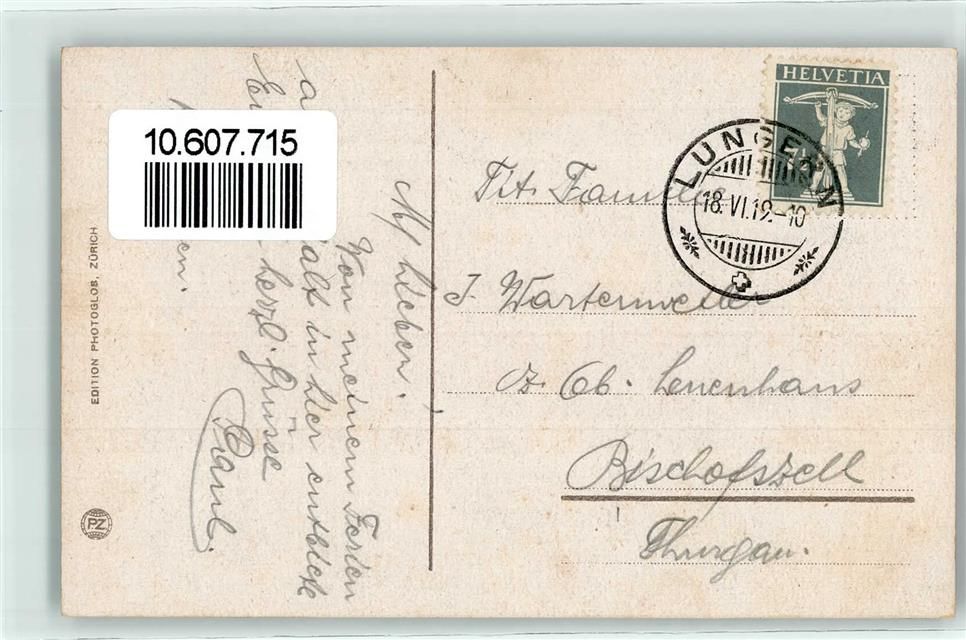 10.607.715
HELVETIA
LUNGERN
18. VI. 19.-10
Tit. Familie
J. Wartenweiler
z. Ob. Leuenhaus
Bischofszell
Thurgau.
M. Lieben!
Von meinem Ferien
alt in hier entbiete
herzl. Grüsse
Paul.
EDITION PHOTOGLOB, ZÜRICH
PZ